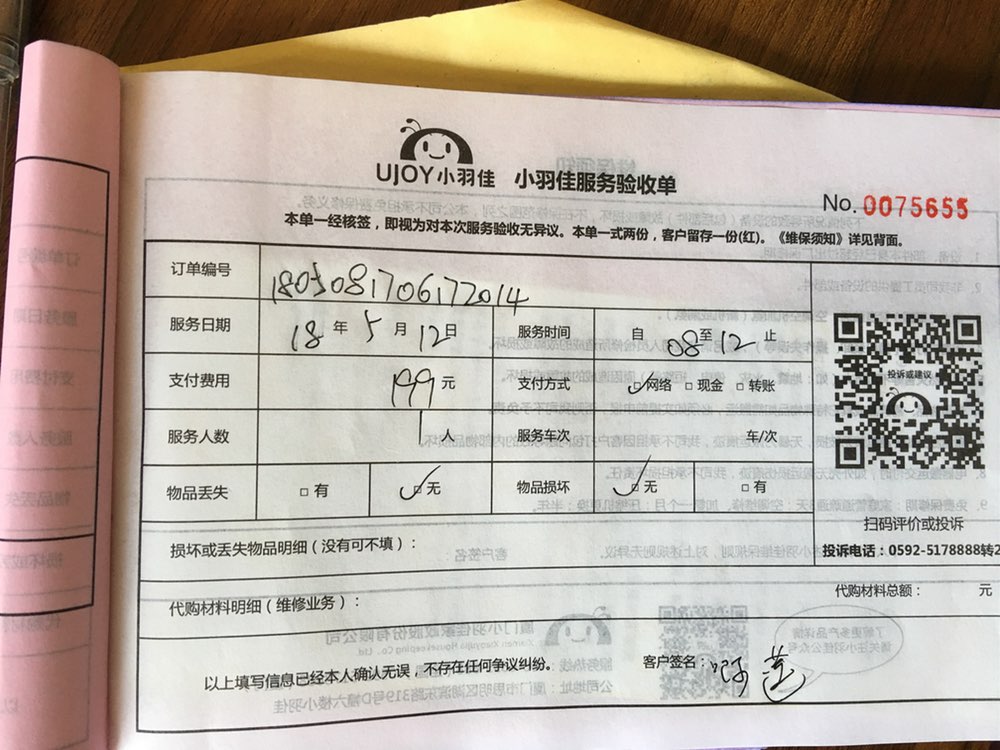 UJOY小羽佳 小羽佳服务验收单
No. 0075655
本单一经核签，即视为对本次服务验收无异议。本单一式两份，客户留存一份(红)。《维保须知》详见背面。
订单编号 1805081706172014
服务日期 18 年 5 月 12 日 服务时间 自 08 至 12 止
支付费用 199 元 支付方式 ☑网络 □现金 □转账
投诉或建议
服务人数 1 人 服务车次 车/次
物品丢失 □有 ☑无 物品损坏 ☑无 □有
扫码评价或投诉
投诉电话：0592-5178888转2
损坏或丢失物品明细（没有可不填）：
代购材料明细（维修业务）： 代购材料总额： 元
以上填写信息已经本人确认无误，不存在任何争议纠纷。 客户签名：